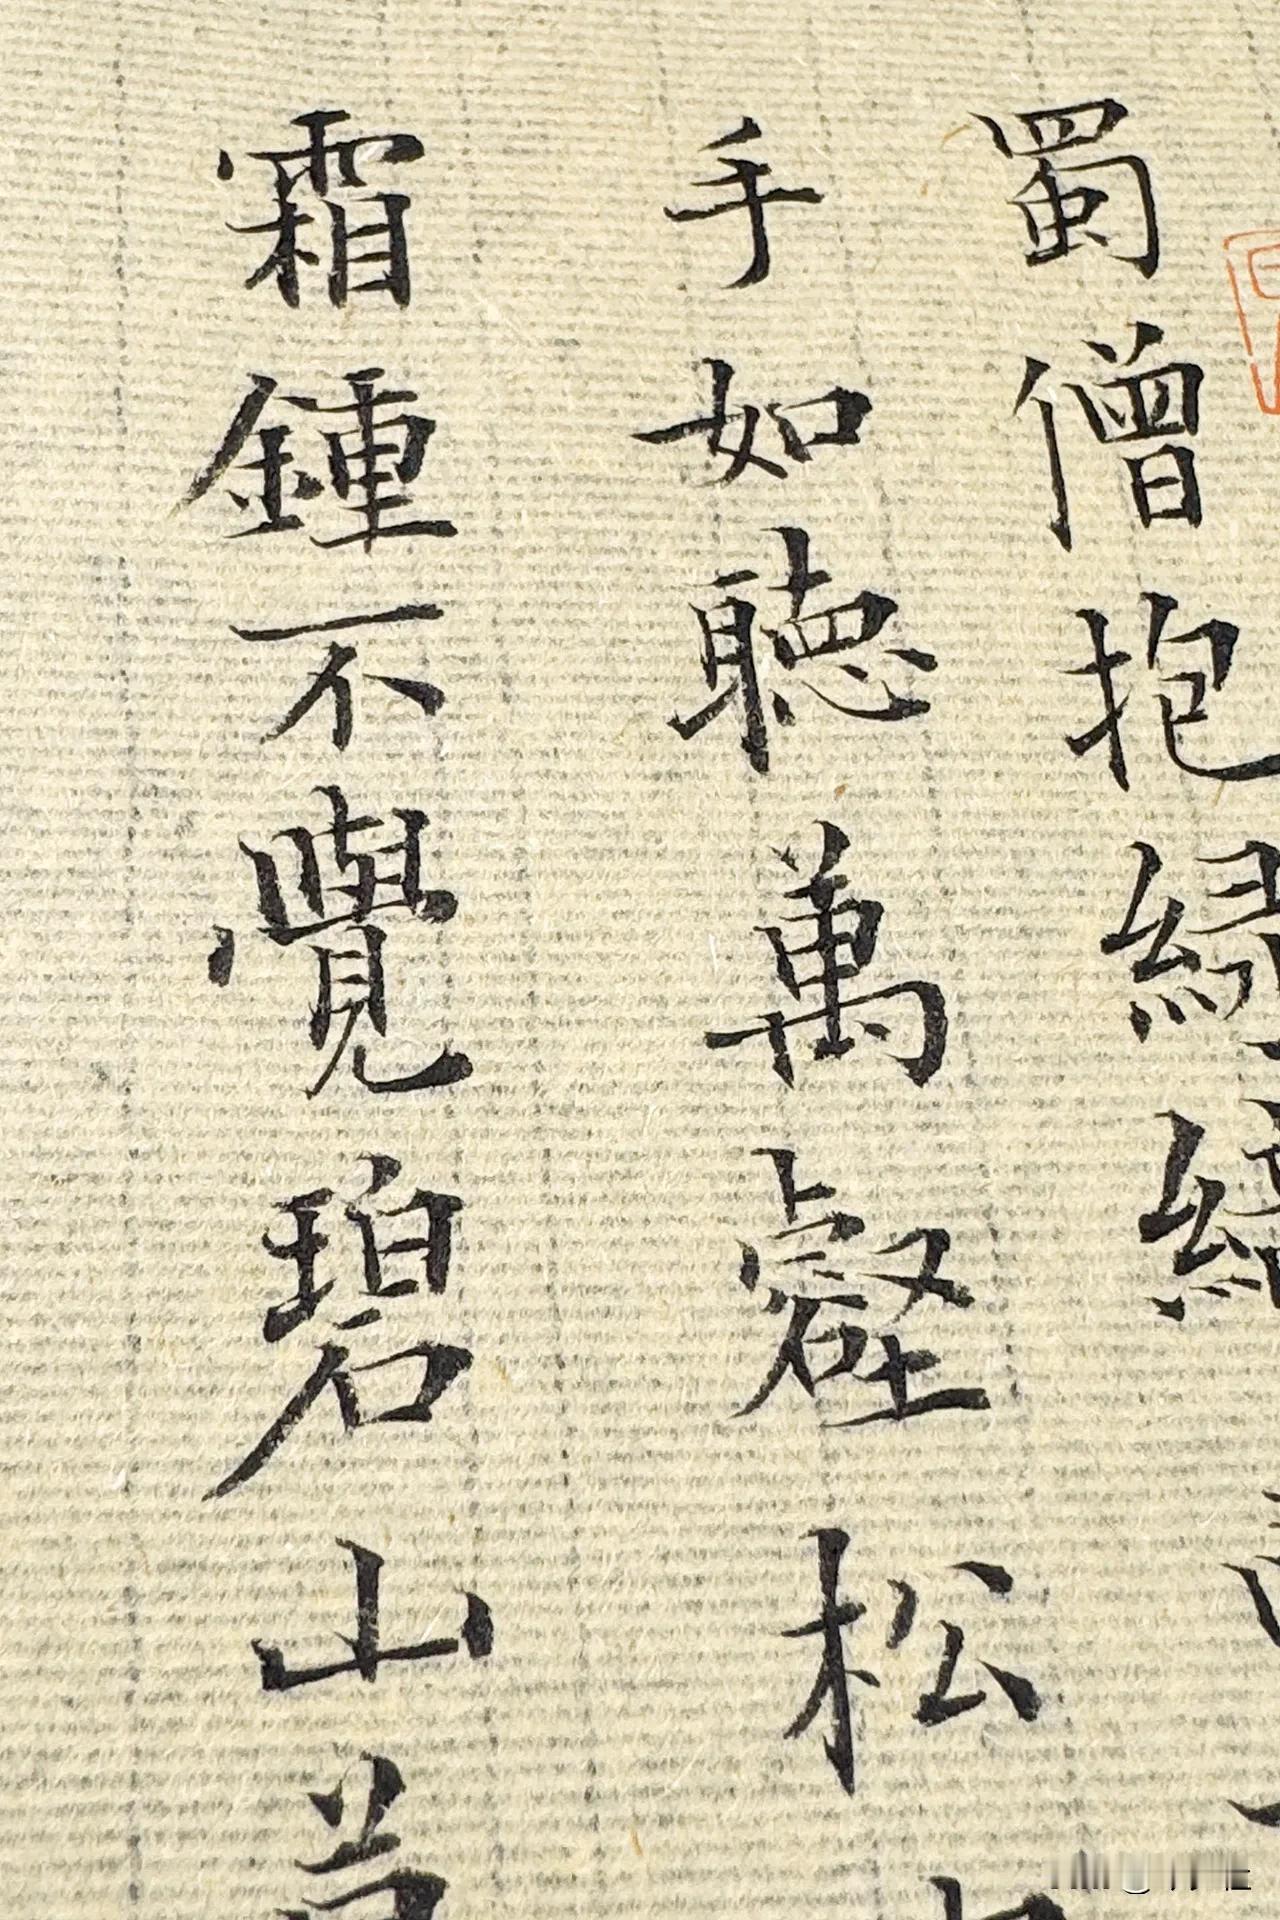 蜀僧抱緑
手如聴萬壑松
霜鍾不覺碧山